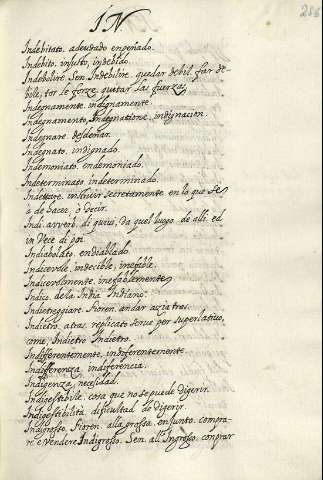 IN
288
Indebitato. adeudado enpeñado.
Indebito. injusto, indebido.
Indebolire. Sen. Indebilire. quedar debil. far de-
bile, tor le forze, quitar las fuerzas
Indegnamente. indignamente
Indegnamento, Indegnatione. indignacion.
Indegnare. desdeñar.
Indegnato. indignado.
Indemoniato. endemoniado.
Indeterminato. indeterminado.
Indettare. instruir secretamente en lo que se
à de hacer, ò decir.
Indi. averb. di quivi, da quel luogo. de alli. ed
in Vece di poi.
Indiabolato. endiablado.
Indicevole, indecible, inefable.
Indicevolmente. inefablemente
Indico. dela India. Indiano.
Indietreggiare. Fioren. andar azia tras.
Indietro. atras. replicato serue per superlatiuo,
come, Indietro Indietro.
Indiferentemente. indiferentemente.
Indifferenza. indiferencia.
Indigenza, necesidad.
Indigestibile. cosa que no se puede digerir.
Indigestibilità dificultad de digerir.
Indigrosso. Fioren. alla grossa. en junto. compra-
re e vendere Indigrosso. Sen. all'Ingrosso. conprar